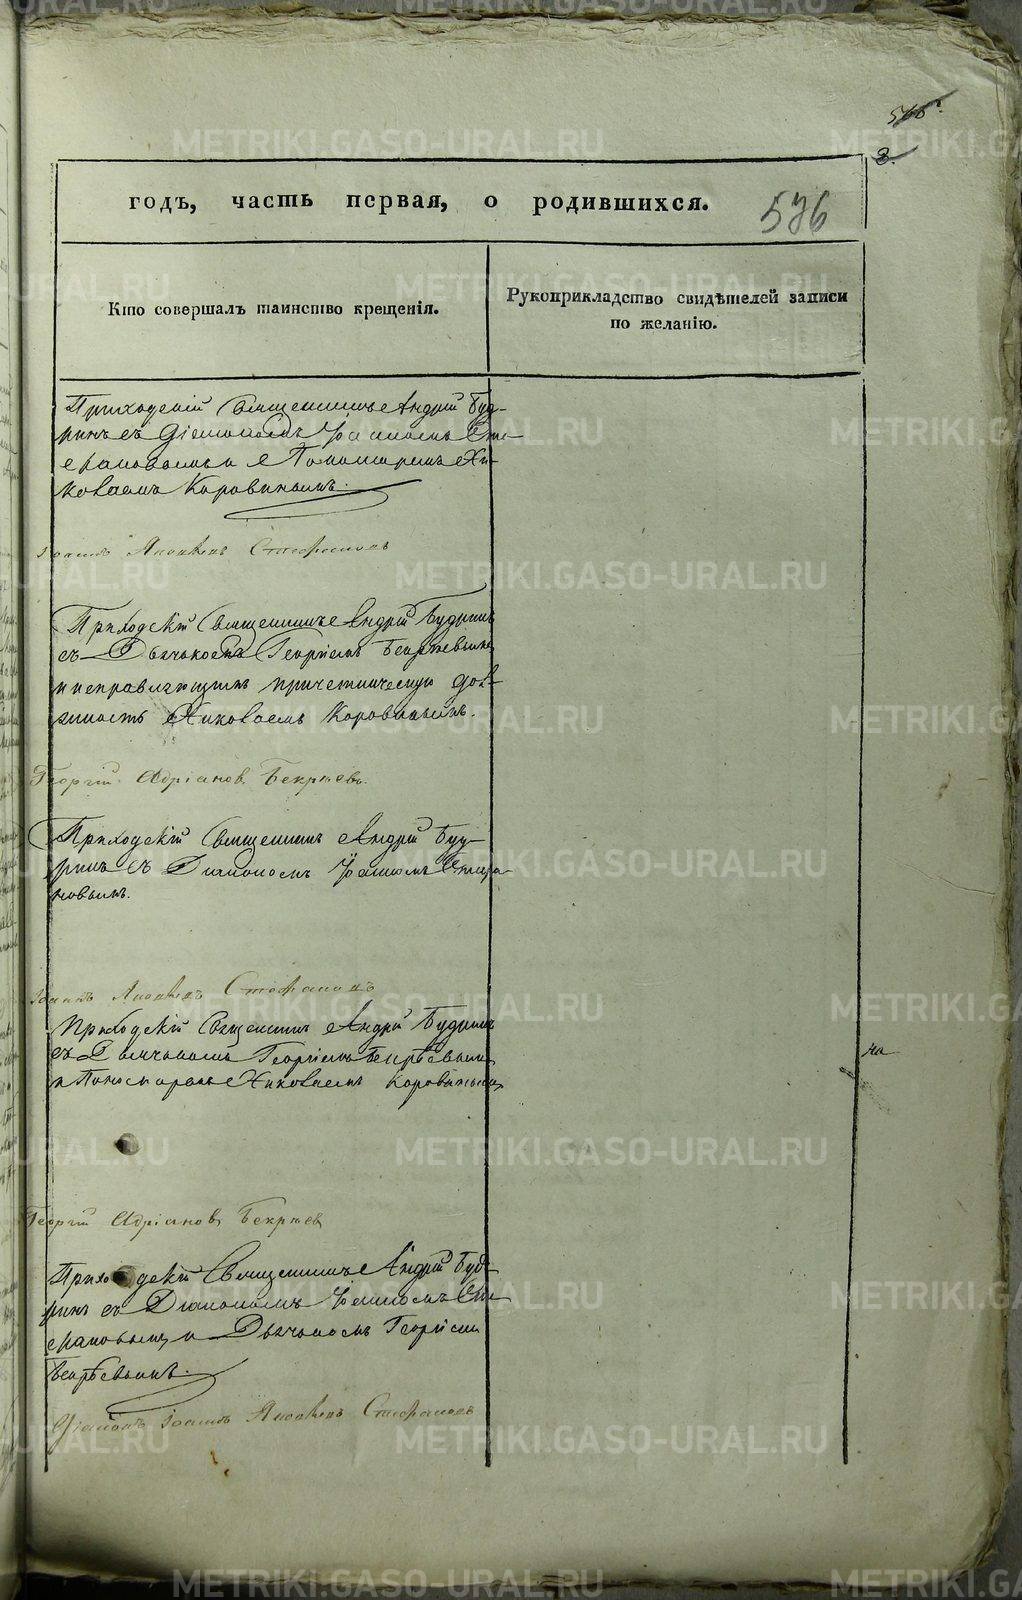 годъ, часть первая, о родившихся.
576
2.
Кто совершалъ таинство крещенія.
Рукоприкладство свидѣтелей записи
по желанію.
Приходскій Священникъ Андрей Буд-
ринъ съ Діакономъ Іоанномъ Сте-
фановымъ и Пономаремъ Ни-
колаемъ Коровинымъ.
Іоаннъ Яковлевъ Стефановъ
Приходскій Священникъ Андрей Будринъ
съ Дьячкомъ Георгіемъ Бекрѣевымъ
и исправляющимъ причетническую дол-
жность Николаемъ Коровинымъ.
Георгій Адріановъ Бекрѣевъ.
Приходскій Священникъ Андрей Буд-
ринъ съ Діакономъ Іоанномъ Стефа-
новымъ.
Іоаннъ Яковлевъ Стефановъ
Приходскій Священникъ Андрей Будринъ
съ Дьячкомъ Георгіемъ Бекрѣевымъ
и Пономаремъ Николаемъ Коровинымъ
на
Георгій Адріановъ Бекрѣевъ
Приходскій Священникъ Андрей Буд-
ринъ съ Діакономъ Іоанномъ Сте-
фановымъ и Дьячкомъ Георгіемъ
Бекрѣевымъ.
Діаконъ Іоаннъ Яковлевъ Стефановъ
METRIKI.GASO-URAL.RU